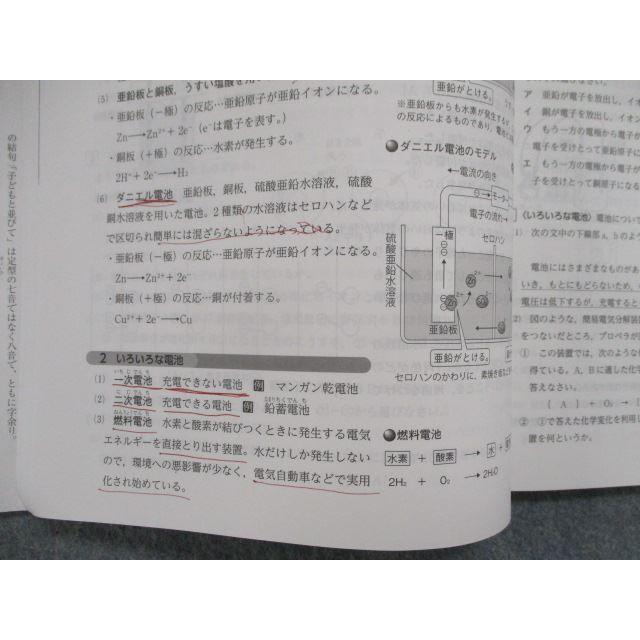 の結句『子どもと並びて』は定型の七音ではなく八音で、ともに字余り。
(5) 亜鉛と銅板、うすい塩酸を用い
・亜鉛板(−極)の反応…亜鉛原子が亜鉛イオンになる。
Zn→Zn²⁺+2e⁻ (e⁻は電子を表す。)
・銅板(+極)の反応…水素が発生する。
2H⁺+2e⁻→H₂
(6) ダニエル電池 亜鉛板、銅板、硫酸亜鉛水溶液、硫酸
銅水溶液を用いた電池。2種類の水溶液はセロハンなど
で区切られ簡単には混ざらないようになっている。
・亜鉛板(−極)の反応…亜鉛原子が亜鉛イオンになる。
Zn→Zn²⁺+2e⁻
・銅板(+極)の反応…銅が付着する。
Cu²⁺+2e⁻→Cu
2 いろいろな電池
(1) 一次電池 充電できない電池 例 マンガン乾電池
いちじでんち
(2) 二次電池 充電できる電池 例 鉛蓄電池
にじでんち なまりちくでんち
(3) 燃料電池 水素と酸素が結びつくときに発生する電気
ねんりょうでんち
エネルギーを直接とり出す装置。水だけしか発生しない
ので、環境への悪影響が少なく、電気自動車などで実用
化され始めている。
亜鉛がとける。
※亜鉛板からも水素が発生するが
の反応によるものであり、電池
●ダニエル電池のモデル
←電流の向き
モーター
電子の流れ
−極
セロハン
硫酸亜鉛水溶液
亜鉛板
亜鉛がとける。
セロハンのかわりに、素焼き
●燃料電池
水素 + 酸素 → 水 +
2H₂ + O₂ → 2H₂O
ア 亜鉛が電子を放出し、イオ
イ 銅が電子を放出し、イオン
ウ もう一方の電極から電子が
電子を受けとって亜鉛原子に
エ もう一方の電極から電子が
子を受けとって銅原子になる
〈いろいろな電池〉 電池につい
(1) 次の文中の下線部a、bのよう
電池にはさまざまなものがあ
いき、もとにもどらないため、
電圧は低下するが、充電すると
(2) 図のような、簡易電気分解装置
をつないだところ、プロペラが
① この装置では、次のような
得ている。A、Bに適した化学
答えなさい。
[ A ] + O₂ →
② ①で答えた化学変化を利用し
置を何というか。